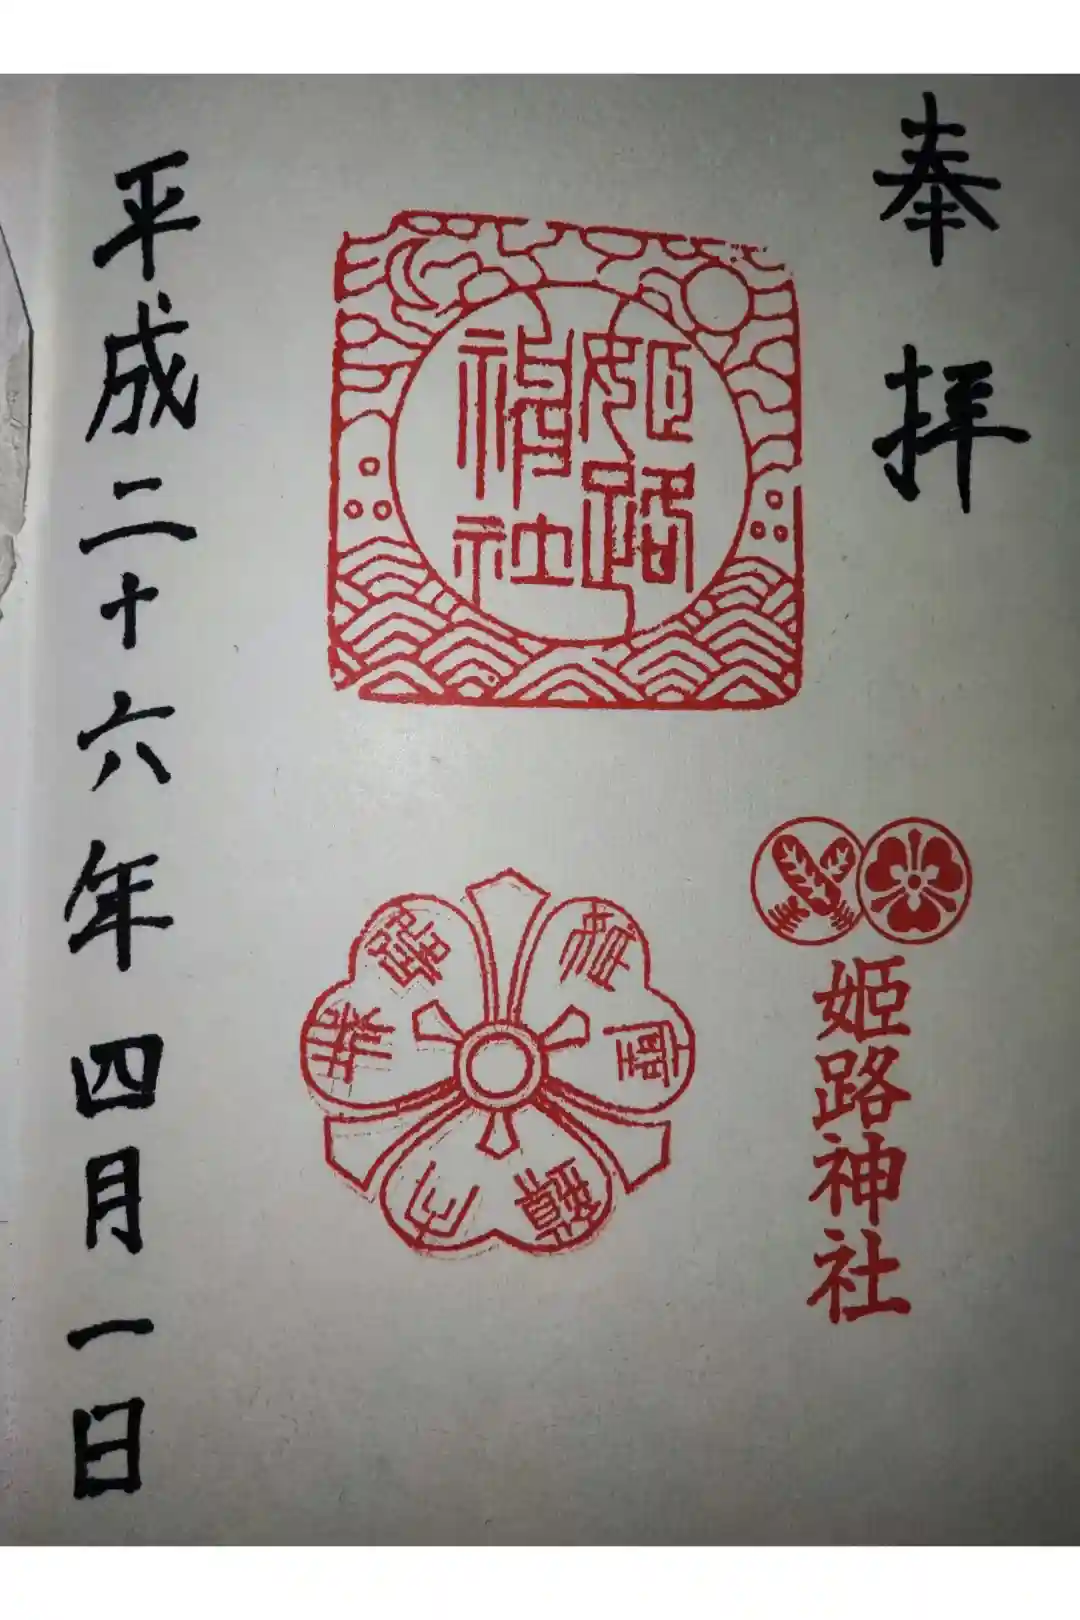 奉拝
姫路
神社
姫路神社
平成二十六年四月一日